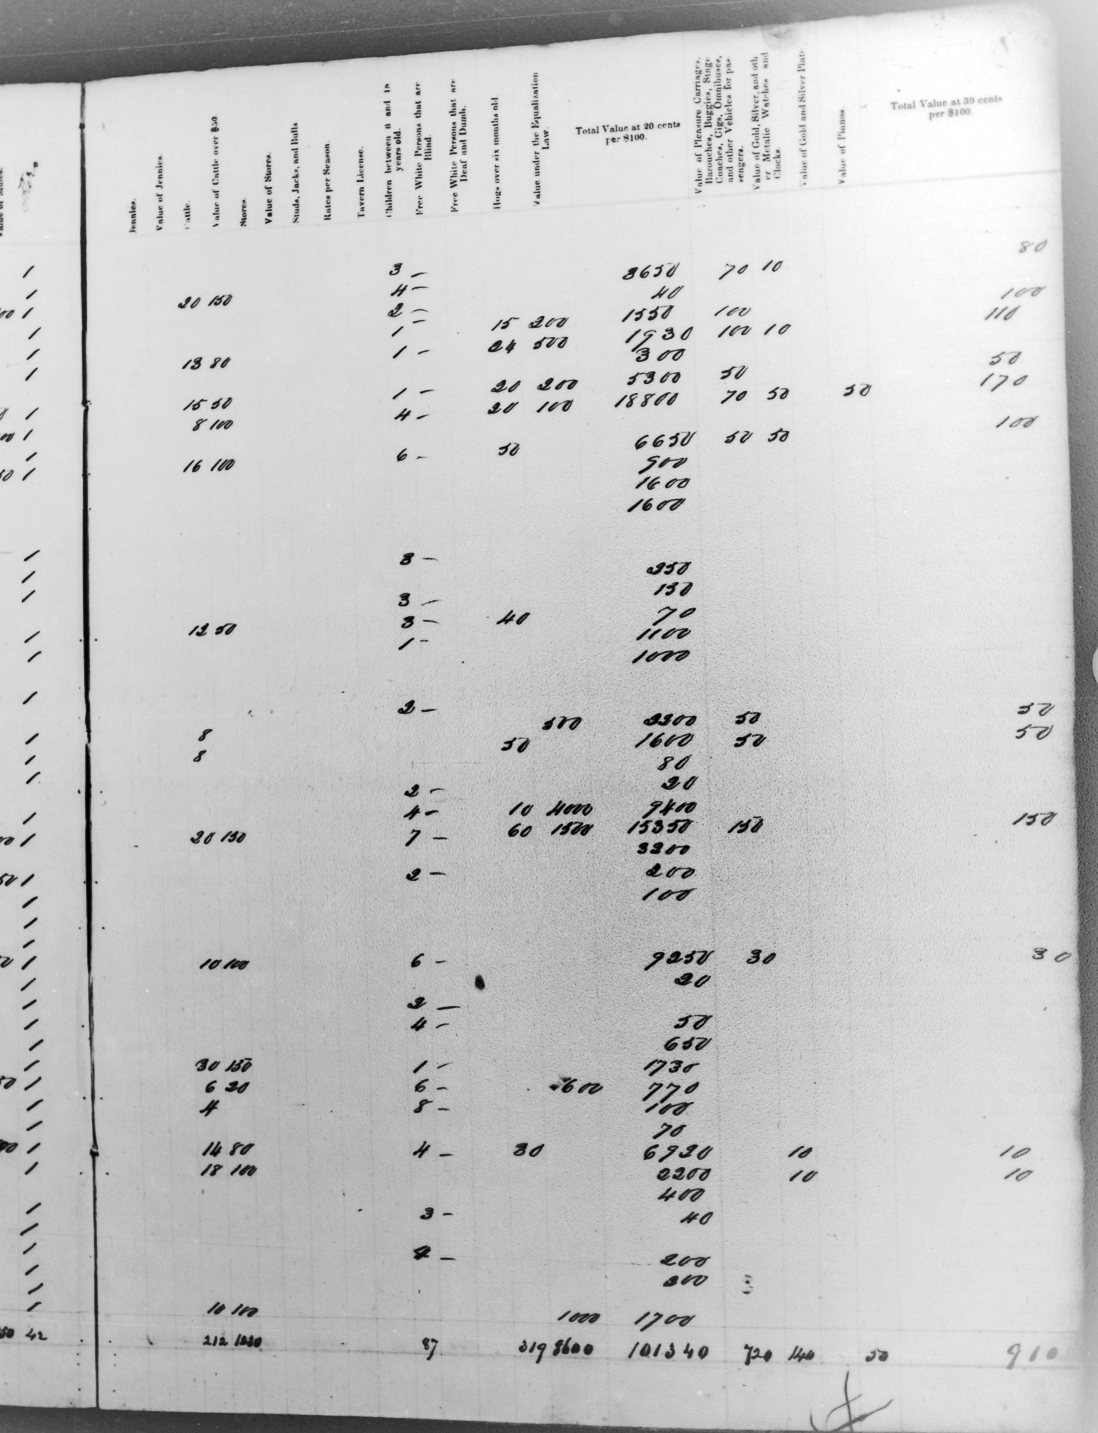 Jennies.
Value of Jennies.
Cattle.
Value of Cattle over $50.
Stores.
Value of Stores.
Studs, Jacks, and Bulls
Rates per Season.
Tavern License.
Children between 6 and 18 years old.
Free White Persons that are Blind.
Free White Persons that are Deaf and Dumb.
Hogs over six months old
Value under the Equalization Law.
Total Value at 20 cents per $100.
Value of Pleasure Carriages, Barouches, Buggies, Stage Coaches, Gigs, Omnibuses, and other Vehicles for passengers.
Value of Gold, Silver, and other Metalic Watches and Clocks.
Value of Gold and Silver Plate
Value of Pianos.
Total Value at 30 cents per $100.
1 3 – 3650 70 10 80
1 20 150 4 – 40
1 2 – 1550 100 100
1 1 – 15 200 1930 100 10 110
1 13 80 1 – 24 500 300
1 5300 50 50
15 50 1 – 20 200 18800 70 50 50 170
1 8 100 4 – 20 100
1 6650 50 50 100
1 16 100 6 – 50 900
1 1600
1600
1 3 – 350
1 150
1 3 – 70
12 50 3 – 40 1100
1 1 – 1000
1
1 2 – 500 3300 50 50
1 8 50 1600 50 50
1 8 80
1 2 – 20
1 4 – 10 4000 9400
1 20 150 7 – 60 1500 15350 150 150
3200
1 2 – 200
1 100
1
1
1 10 100 6 – 9250 30 30
1 20
1 2 –
1 4 – 50
1 650
1 30 150 1 – 1730
1 6 20 6 – 600 770
1 4 8 – 100
1 70
1 14 80 4 – 30 6920 10 10
1 18 100 2200 10 10
400
1 3 – 40
1
1 – 200
1 300
1 10 100 1000 1700
42 212 87 319 8600 101340 720 140 50 910